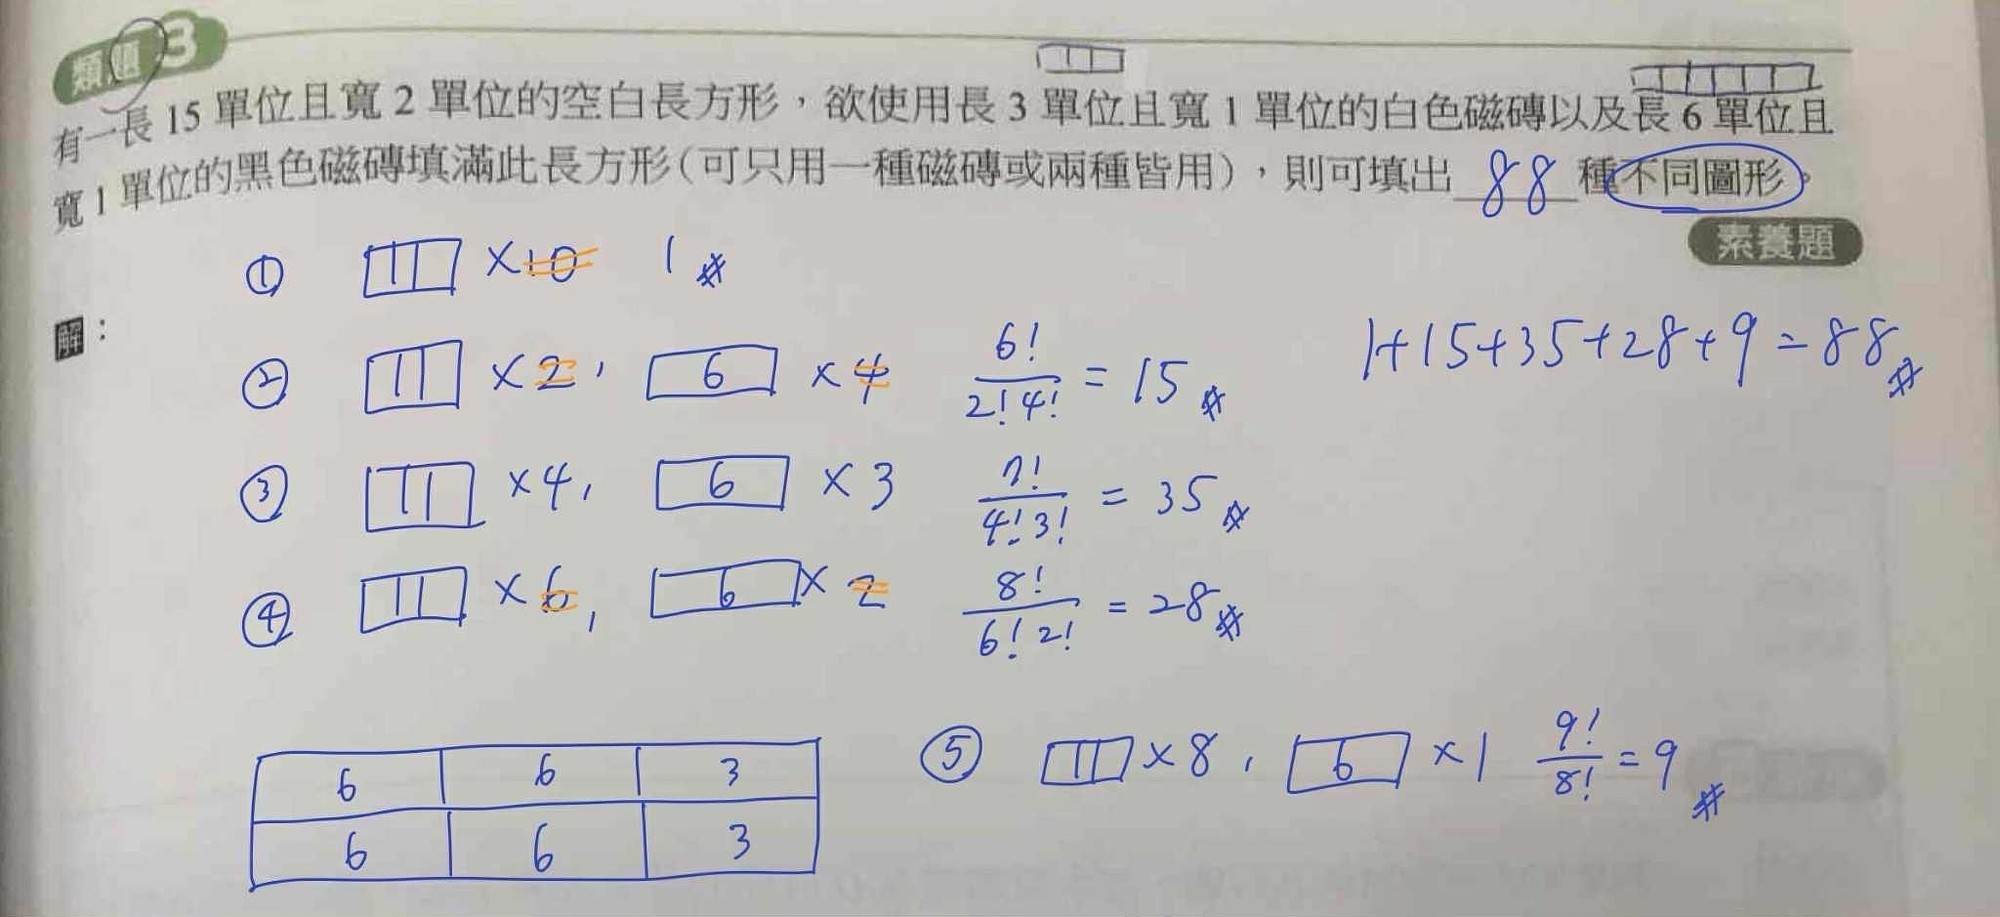 類題 3
有一長 15 單位且寬 2 單位的空白長方形，欲使用長 3 單位且寬 1 單位的白色磁磚以及長 6 單位且
寬 1 單位的黑色磁磚填滿此長方形（可只用一種磁磚或兩種皆用），則可填出 88 種不同圖形。
素養題
解：
① ×10 1
② ×2, 6 ×4 6!/2!4! = 15
1+15+35+28+9=88
③ ×4, 6 ×3 7!/4!3! = 35
④ ×6, 6 ×2 8!/6!2! = 28
⑤ ×8, 6 ×1 9!/8! = 9
6 6 3
6 6 3